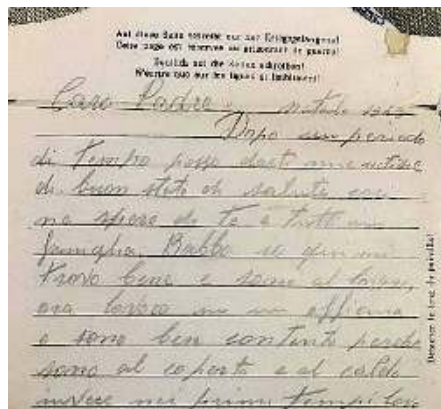 Auf diese Seite schreibt nur der Kriegsgefangene!
Cette page est réservée au prisonnier de guerre!
Deutlich auf die Zeilen schreiben!
N'écrire que sur les lignes et lisiblement!
Caro Padre Natale 1943
Dopo un periodo
di tempo posso darti mie notizie
di buon stato di salute così
ne spero di te e tutti in
famiglia. Babbo io qui mi
trovo bene e sono al
ora lavoro in un officina
e sono ben contento perche
sono al coperto e al caldo
invece nei primi tempi
Détacher le long du pointillé!